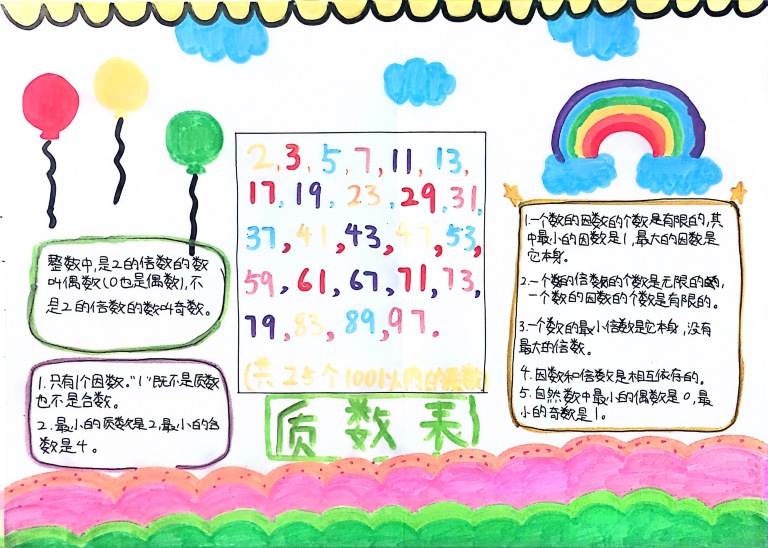 2,3,5,7,11,13,
17,19,23,29,31,
37,41,43,47,53,
59,61,67,71,73,
79,83,89,97.
(共25个100以内的质数)
质数表
整数中,是2的倍数的数
叫偶数(0也是偶数),不
是2的倍数的数叫奇数。
1.只有1个因数。"1"既不是质数
也不是合数。
2.最小的质数是2,最小的合
数是4。
1.一个数的因数的个数是有限的,其
中最小的因数是1,最大的因数是
它本身。
2.一个数的倍数的个数是无限的,
一个数的因数的个数是有限的。
3.一个数的最小倍数是它本身,没有
最大的倍数。
4.因数和倍数是相互依存的。
5.自然数中最小的偶数是0,最
小的奇数是1。